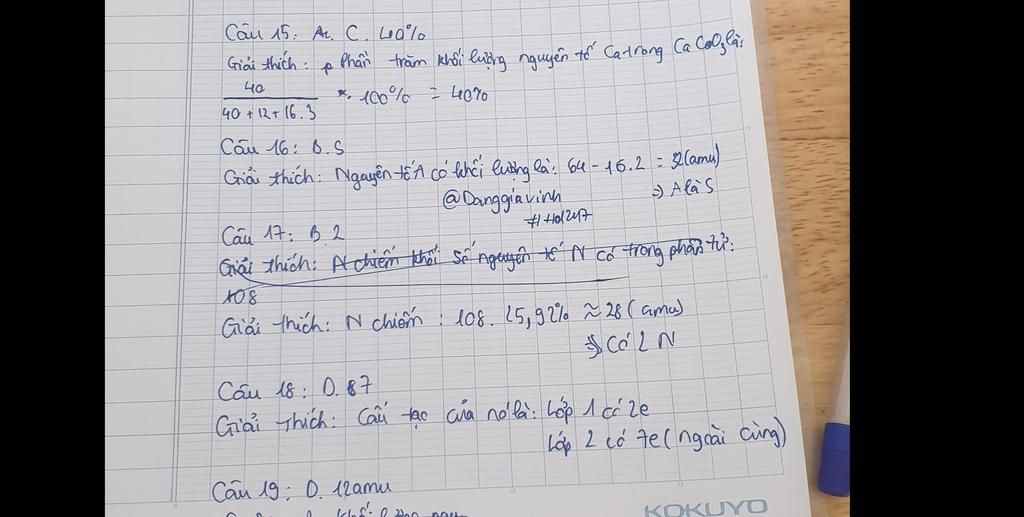 Câu 15: A. C. 40%
Giải thích: Phần trăm khối lượng nguyên tố Ca trong CaCO3 là:
40
40 + 12 + 16.3 . 100% = 40%
Câu 16: B. S
Giải thích: Nguyên tố A có khối lượng là: 64 - 16.2 = 32(amu)
@Danggiavinh ⇒ A là S
#Hol247
Câu 17: B. 2
Giải thích: A chiếm khối số nguyên tố N có trong phân tử:
108
Giải thích: N chiếm: 108. 25,92% ≈ 28 (amu)
⇒ Có 2 N
Câu 18: D. 7
Giải thích: Cấu tạo của nó là: Lớp 1 có 2e
Lớp 2 có 7e (ngoài cùng)
Câu 19: D. 12amu
KOKUYO